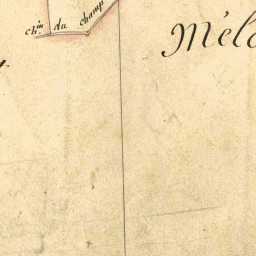 ch.in du champ
Mél